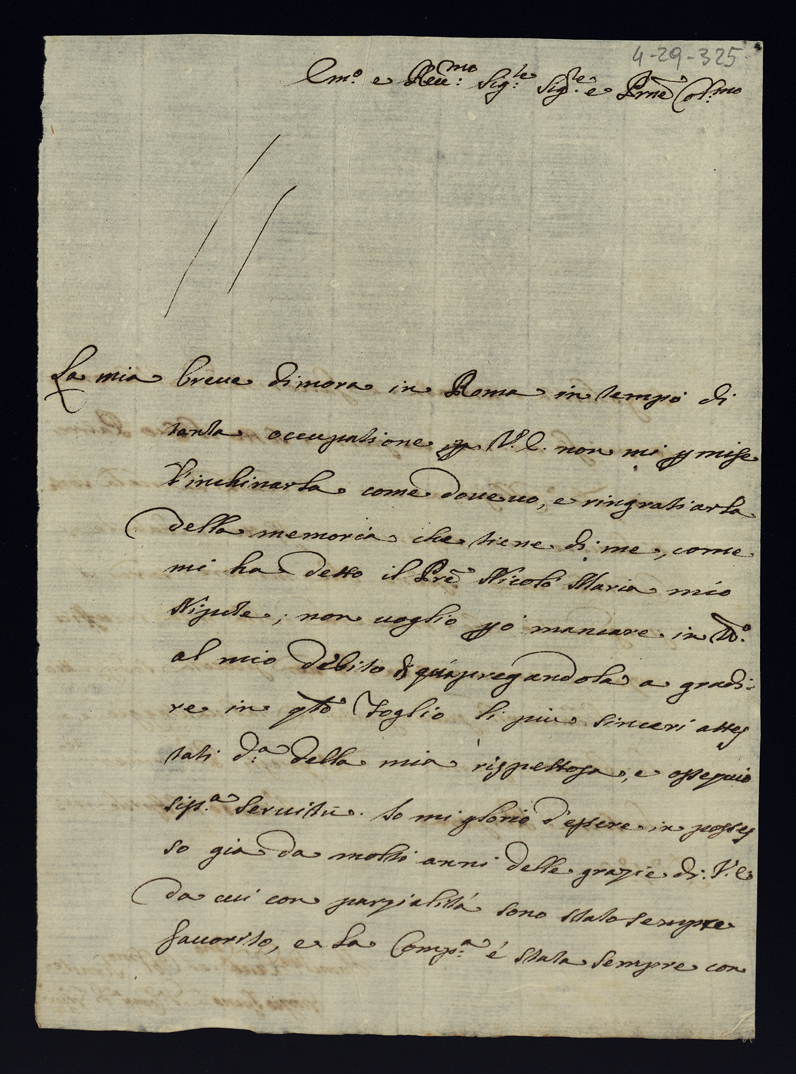 4-29-325
Em.o e Reu.mo Sig.re Sig.re e Prne Col.mo
La mia breue dimora in Roma in tempo di
tanta occupatione p V.E. non mi pmise
l'inchinarla come doueuo, e ringratiarla
della memoria che tiene di me, come
mi ha detto il Pre Nicolò Maria mio
Nipote; non uoglio pò mancare in
al mio debito quà pregandola a gradi-
re in qto foglio li più sinceri attes
tati della mia rispettosa, e ossequio
sis.a seruitù. Io mi glorio d'essere in posses
so già da molti anni delle grazie di V.E
da cui con parzialità sono stato sempre
fauorito, e la Comp.a è stata sempre con